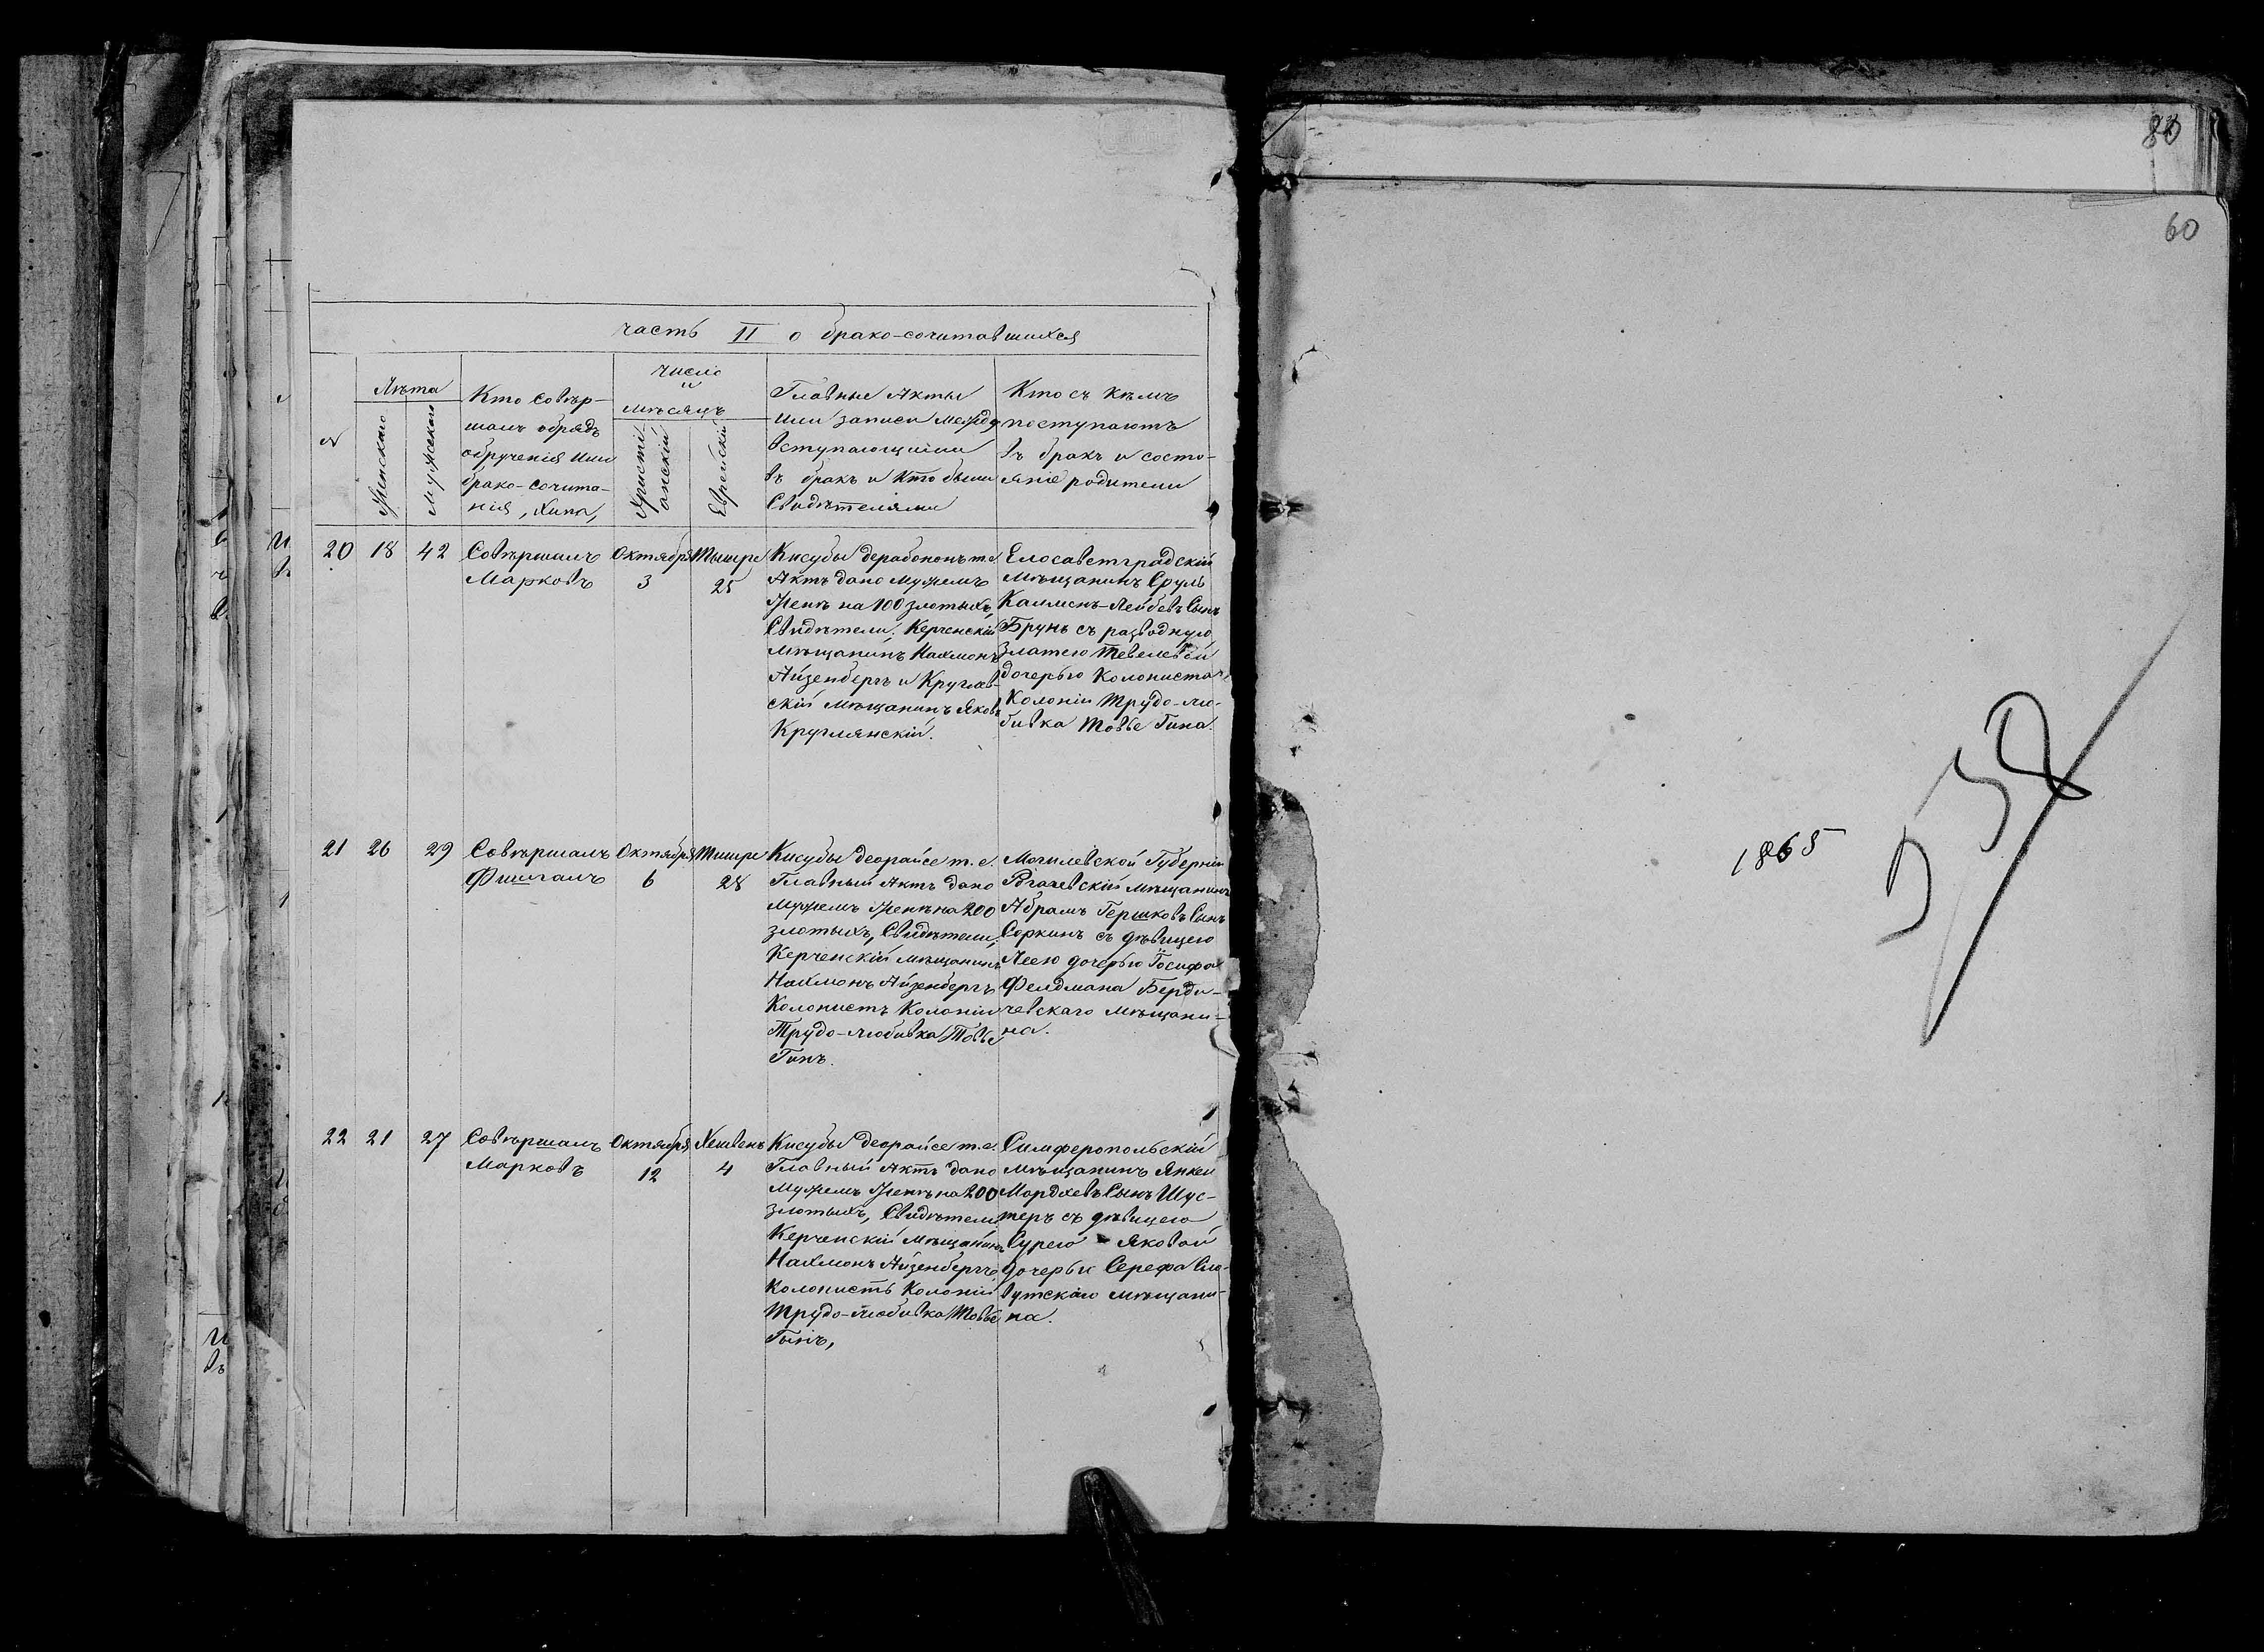 часть II о брако-сочитавшихся
№
Лѣта
Женскаго
Мужскаго
Кто Совѣр-
шалъ обрядъ
обрученія или
брако-сочита-
нія, Хипа,
число
и
мѣсяцъ
Христі
анскій
Еврейскій
Главные Акты
или записи между
вступающими
въ бракъ и кто были
Свидѣтелями
Кто съ кѣмъ
поступаютъ
въ бракъ и состо-
яніе родители
20
18
42
Совѣршалъ
Марковъ
Октября
3
Тышре
25
Кисубы дерабононъ т.е.
Актъ дано мужемъ
Женѣ на 100 злотыхъ,
Свидѣтели: Керченскій
мѣщанинъ Нахмонъ
Айзенбергъ и Круглев-
скій мѣщанинъ Яковъ
Круглянскій.
Елосаветградскій
мѣщанинъ Сруль
Калменъ-Лейбевъ Сынъ
Брунъ съ разводную
Златею Тевелевой
дочерью Колониста
Колоніи Трудо-лю-
бивка Товье Гина.
21
26
29
Совѣршалъ
Фишгалъ
Октября
6
Тишре
28
Кисубы деорайсе т.е.
Главный Актъ дано
мужемъ Женѣ на 200
злотыхъ, Свидѣтели;
Керченскій мѣщанинъ
Нахмонъ Айзенбергъ
Колонистъ Колоніи
Трудо-любивка Товье
Гинъ.
Могилевской Губерніи
Рогачевскій мѣщанинъ
Абрамъ Гершковъ Сынъ
Соркинъ съ дѣвицею
Леею дочерью Іосифа
Фелдмана Берди-
чевскаго мѣщани-
на.
22
21
27
Совѣршалъ
Марковъ
Октября
12
Хешвенъ
4
Кисубы деорайсе т.е.
Главный Актъ дано
мужемъ Женѣ на 200
злотыхъ, Свидѣтели
Керченскій мѣщанинъ
Нахмонъ Айзенбергъ
Колонистъ Колоніи
Трудо-любивка Товье
Гинъ,
Симферопольскій
мѣщанинъ Янкел
Мордхевъ Сынъ Шус-
теръ съ дѣвицею
Сурею Яковой
дочерью Серефа Сла-
вутскаго мѣщани-
на.
60
1865